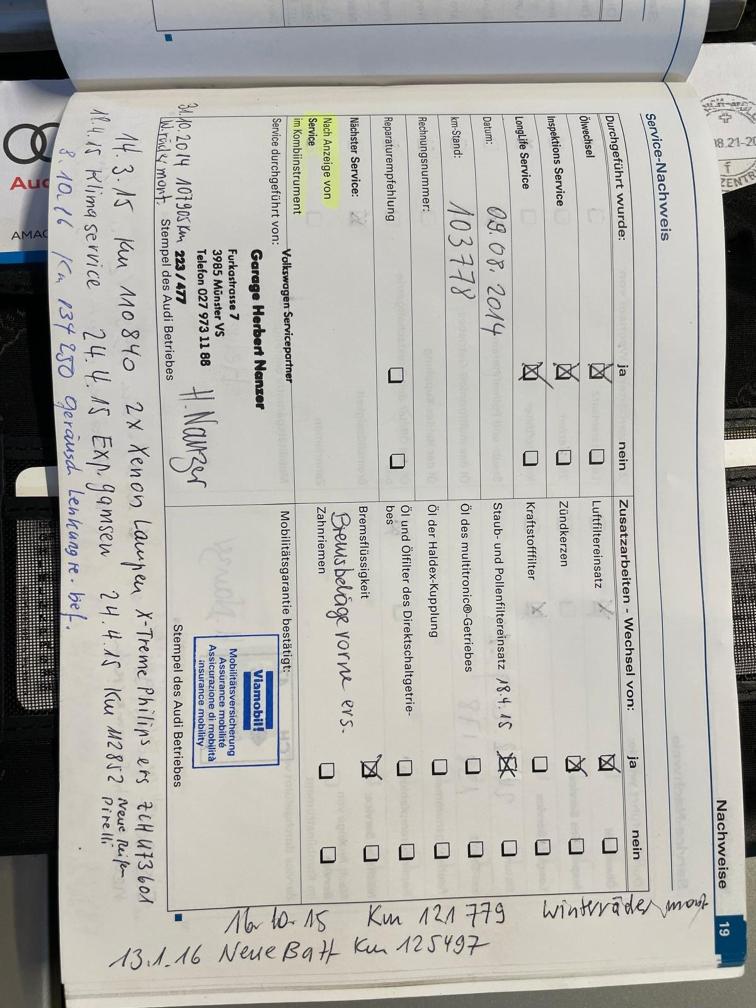 Nachweise 19
Service-Nachweis
Durchgeführt wurde: ja nein
Ölwechsel
Inspektions Service
LongLife Service
Datum: 09.08.2014
km-Stand: 103778
Rechnungsnummer:
Reparaturempfehlung
Nächster Service:
Nach Anzeige von
Service
im Kombiinstrument
Service durchgeführt von:
Volkswagen Servicepartner
Garage Herbert Nanzer
Furkastrasse 7
3985 Münster VS
Telefon 027 973 11 88
223 / 477
H. Nanzer
Stempel des Audi Betriebes
Zusatzarbeiten - Wechsel von: ja nein
Luftfiltereinsatz
Zündkerzen
Kraftstofffilter
Staub- und Pollenfiltereinsatz 18.4.15
Öl des multitronic®-Getriebes
Öl der Haldex-Kupplung
Öl und Ölfilter des Direktschaltgetrie-
bes
Bremsflüssigkeit
Bremsbeläge vorne ers.
Zahnriemen
Mobilitätsgarantie bestätigt:
Viamobil!
Mobilitätsversicherung
Assurance mobilité
Assicurazione di mobilità
insurance mobility
Stempel des Audi Betriebes
31.10.2014 107905km
14.3.15 Km 110840 2x Xenon Lampen X-Treme Philips ers
18.4.15 Klimaservice 24.4.15 24.4.15 Km 112852 Neue Reifen
Pirelli
8.10.16 Km 134250 Geräusch
16.10.15 Km 121779 Winterräder mont
13.1.16 Neue Batt Km 125497
Aud
AMAG